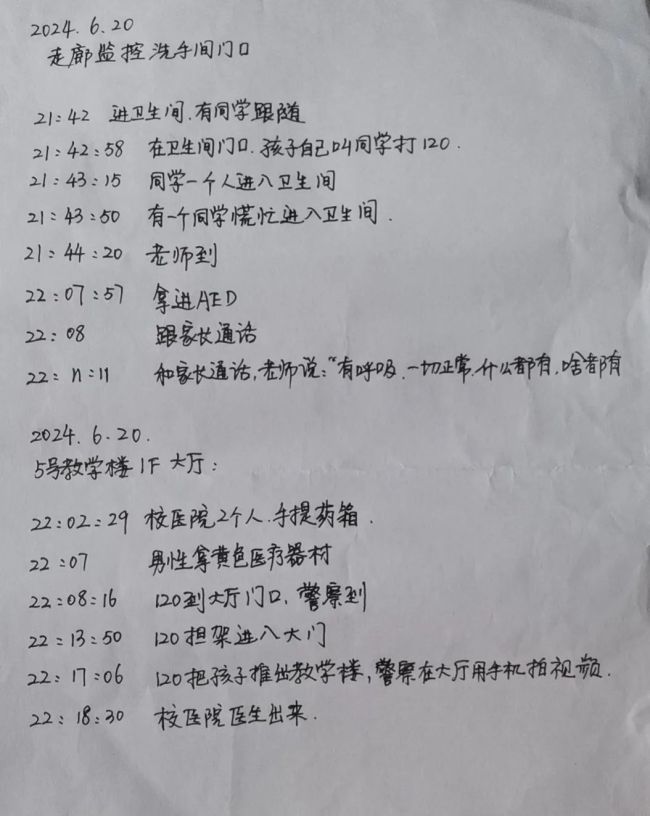 2024.6.20
走廊监控洗手间门口
21:42 进卫生间.有同学跟随
21:42:58 在卫生间门口.孩子自己叫同学打120.
21:43:15 同学一个人进入卫生间
21:43:50 有一个同学慌忙进入卫生间.
21:44:20 老师到
22:07:57 拿进AED
22:08 跟家长通话
22:11:11 和家长通话,老师说:“有呼吸.一切正常.什么都有,啥都有
2024.6.20.
5号教学楼1F大厅:
22:02:29 校医院2个人.手提药箱.
22:07 男性拿黄色医疗器材
22:08:16 120到大厅门口,警察到
22:13:50 120担架进入大门
22:17:06 120把孩子推出教学楼,警察在大厅用手机拍视频.
22:18:30 校医院医生出来.